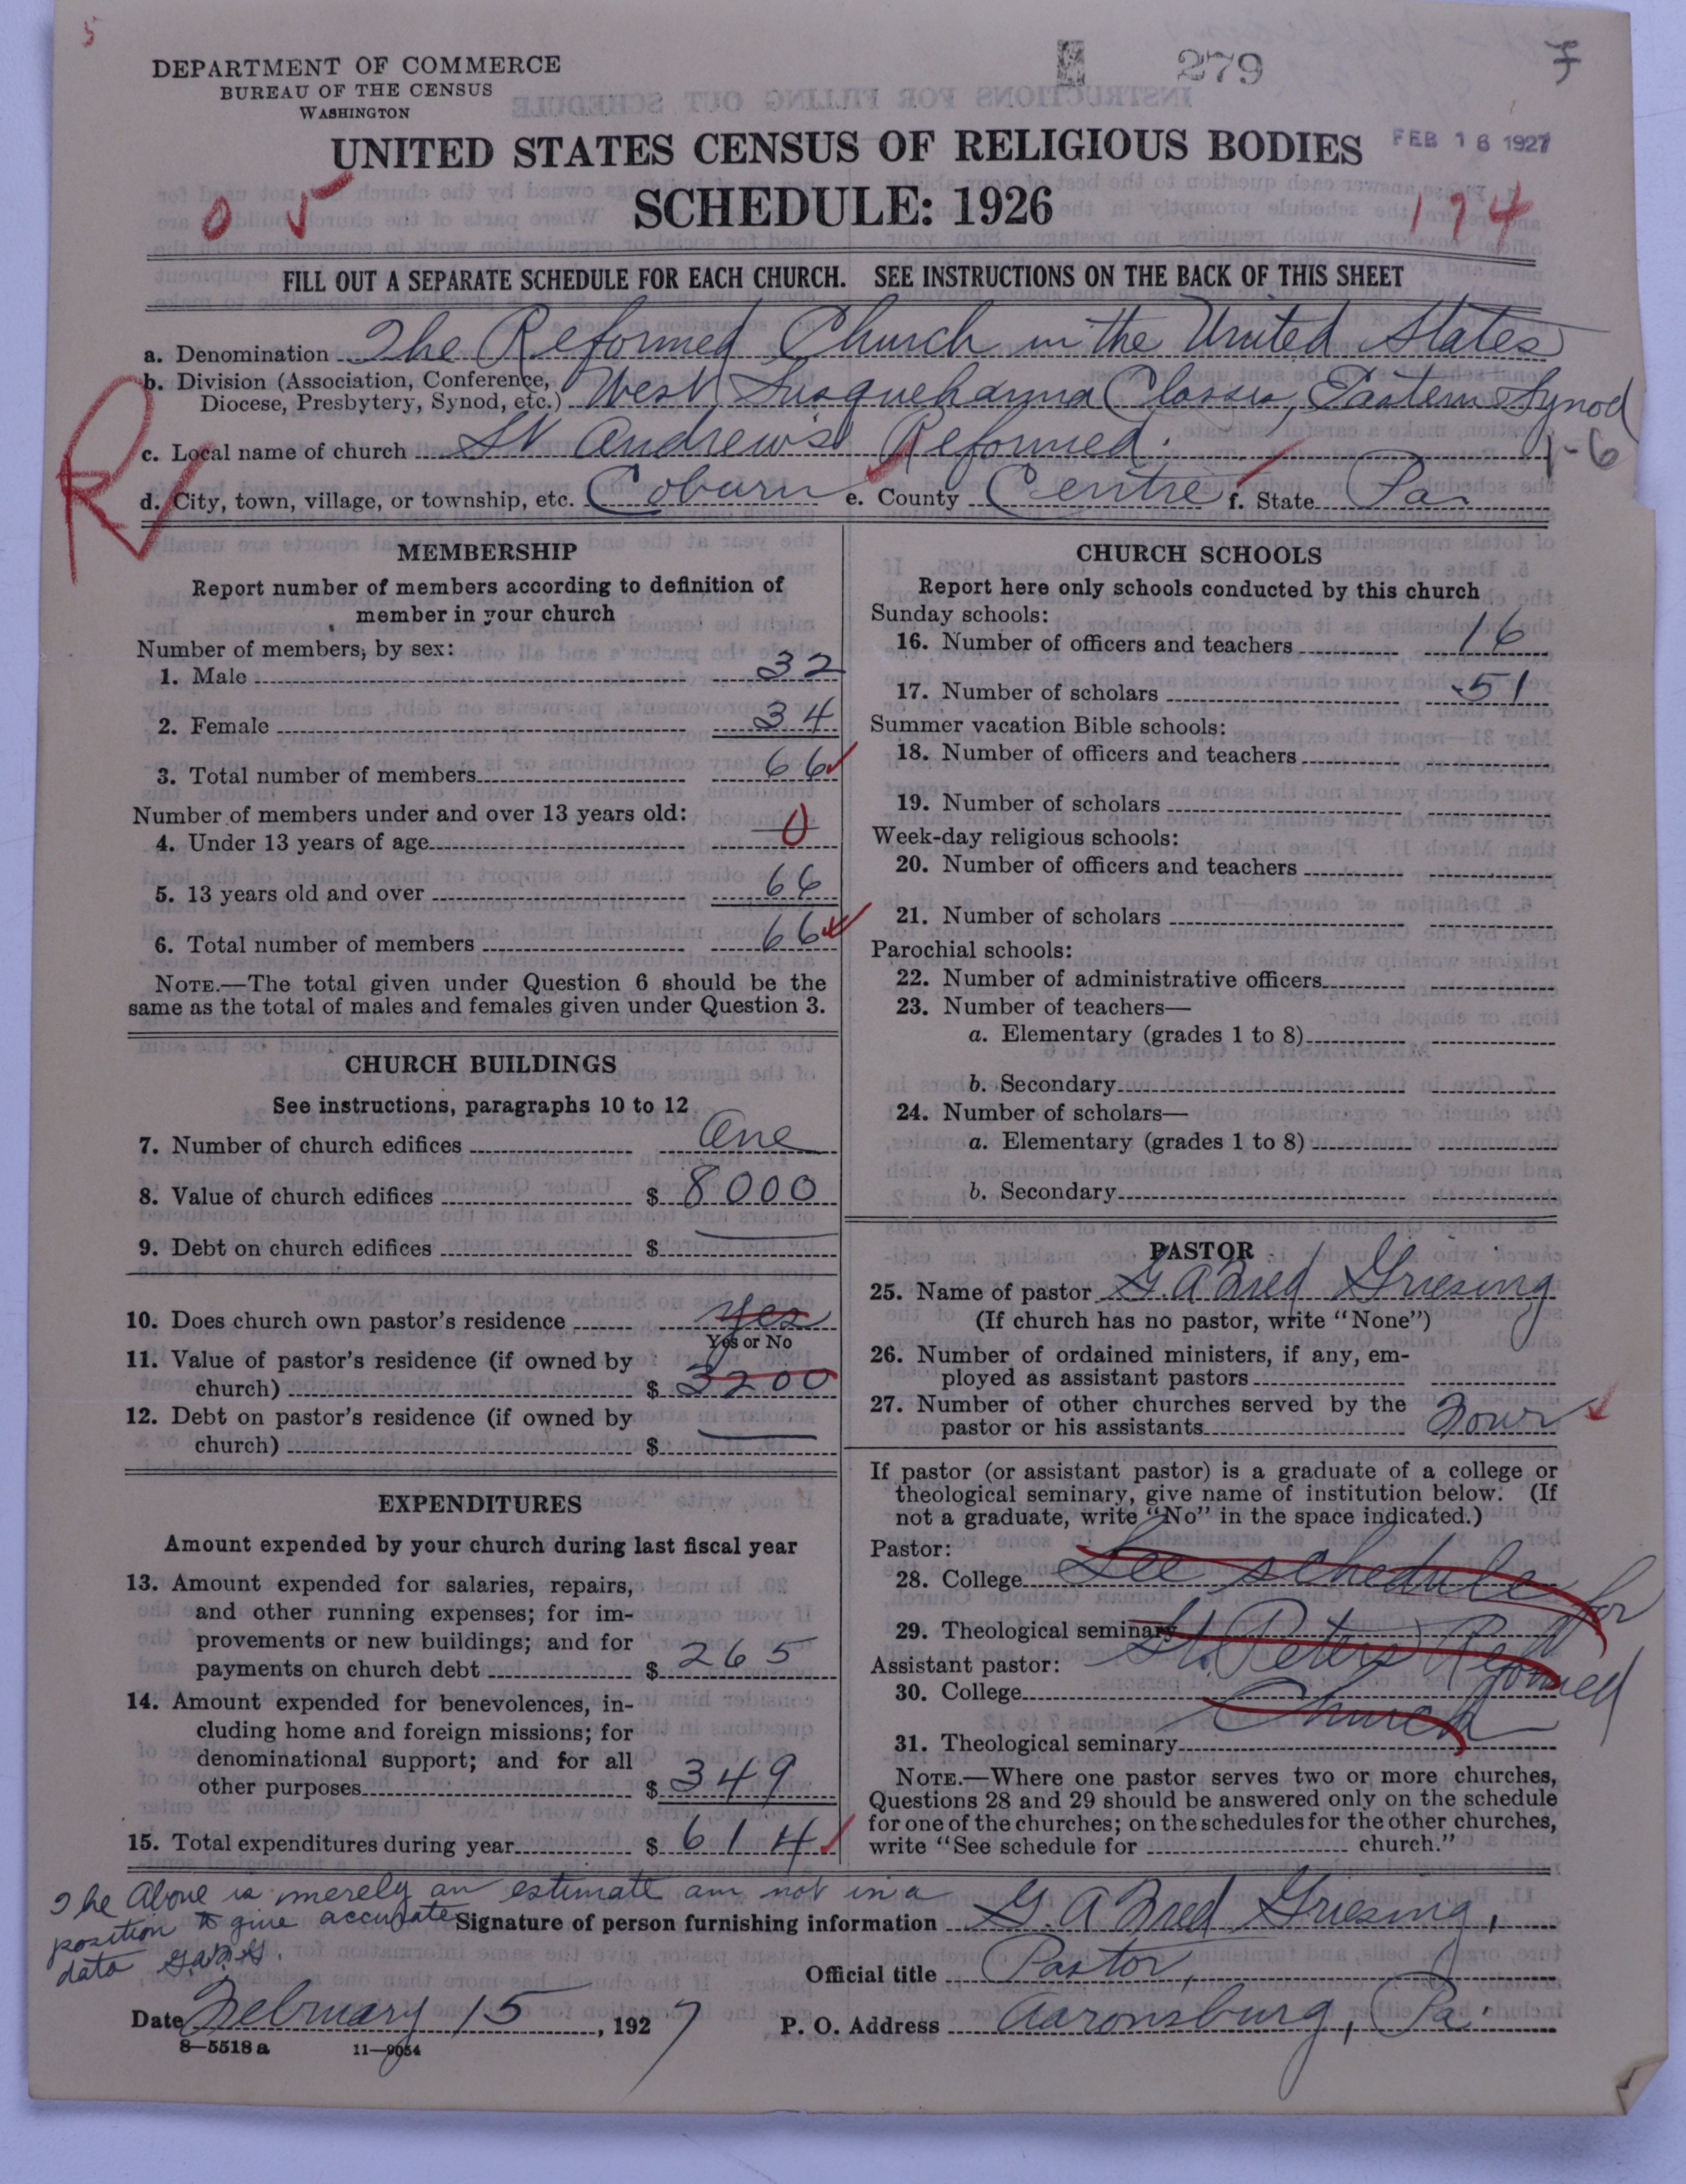 5
DEPARTMENT OF COMMERCE
BUREAU OF THE CENSUS
WASHINGTON
279
FEB 16 1927
UNITED STATES CENSUS OF RELIGIOUS BODIES
SCHEDULE: 1926
0 5
174
FILL OUT A SEPARATE SCHEDULE FOR EACH CHURCH. SEE INSTRUCTIONS ON THE BACK OF THIS SHEET
a. Denomination The Reformed Church in the United States
b. Division (Association, Conference, Diocese, Presbytery, Synod, etc.) West Susquehanna Classis, Eastern Synod
c. Local name of church St Andrew's Reformed.
1-6
d. City, town, village, or township, etc. Coburn e. County Centre f. State Pa.
MEMBERSHIP
Report number of members according to definition of
member in your church
Number of members, by sex:
1. Male 32
2. Female 34
3. Total number of members 66
Number of members under and over 13 years old:
4. Under 13 years of age 0
5. 13 years old and over 66
6. Total number of members 66
NOTE.—The total given under Question 6 should be the
same as the total of males and females given under Question 3.
CHURCH BUILDINGS
See instructions, paragraphs 10 to 12
7. Number of church edifices One
8. Value of church edifices $ 8000
9. Debt on church edifices $
10. Does church own pastor's residence Yes
Yes or No
11. Value of pastor's residence (if owned by
church) $ 3200
12. Debt on pastor's residence (if owned by
church) $
EXPENDITURES
Amount expended by your church during last fiscal year
13. Amount expended for salaries, repairs,
and other running expenses; for im-
provements or new buildings; and for
payments on church debt $ 265
14. Amount expended for benevolences, in-
cluding home and foreign missions; for
denominational support; and for all
other purposes $ 349
15. Total expenditures during year $ 614
CHURCH SCHOOLS
Report here only schools conducted by this church
Sunday schools:
16. Number of officers and teachers 16
17. Number of scholars 51
Summer vacation Bible schools:
18. Number of officers and teachers
19. Number of scholars
Week-day religious schools:
20. Number of officers and teachers
21. Number of scholars
Parochial schools:
22. Number of administrative officers
23. Number of teachers—
a. Elementary (grades 1 to 8)
b. Secondary
24. Number of scholars—
a. Elementary (grades 1 to 8)
b. Secondary
PASTOR
25. Name of pastor G. A. Fred Griesing
(If church has no pastor, write "None")
26. Number of ordained ministers, if any, em-
ployed as assistant pastors
27. Number of other churches served by the
pastor or his assistants Four
If pastor (or assistant pastor) is a graduate of a college or
theological seminary, give name of institution below. (If
not a graduate, write "No" in the space indicated.)
Pastor:
28. College See schedule for
29. Theological seminary St. Peters Reformed
Assistant pastor:
30. College Church
31. Theological seminary
NOTE.—Where one pastor serves two or more churches,
Questions 28 and 29 should be answered only on the schedule
for one of the churches; on the schedules for the other churches,
write "See schedule for church."
The Above is merely an estimate am not in a
position to give accurate
data G.A.F.G.
Signature of person furnishing information G. A. Fred Griesing,
Official title Pastor,
Date February 15, 1927
P. O. Address Aaronsburg, Pa.
8—5518 a 11—9054